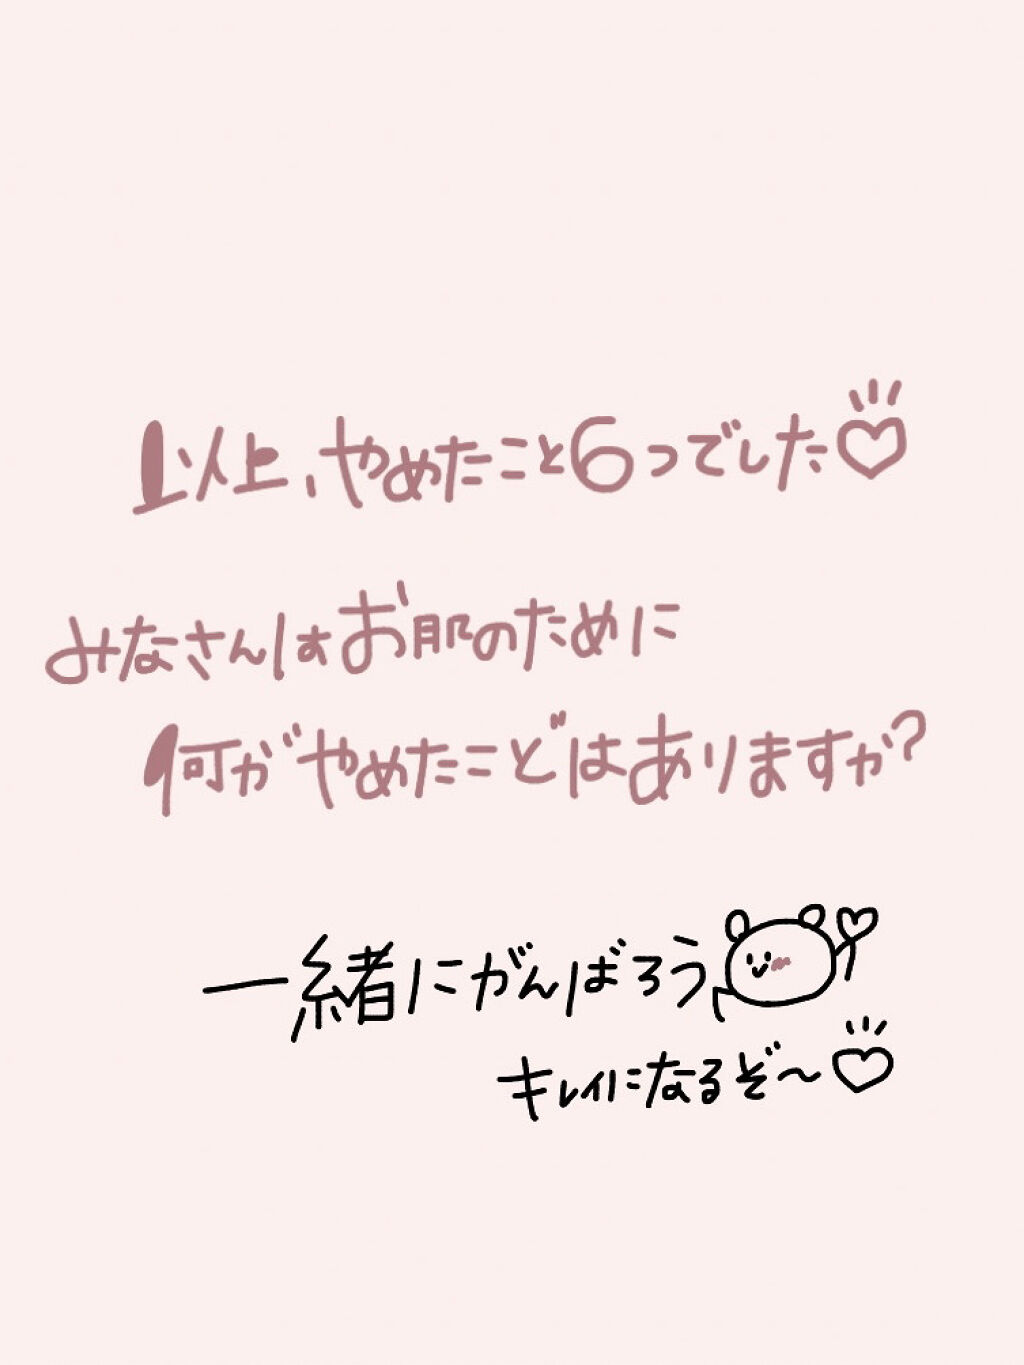 以上、やめたこと6つでした♡
みなさんはお肌のために
何かやめたことはありますか?
一緒にがんばろう
キレイになるぞ〜♡